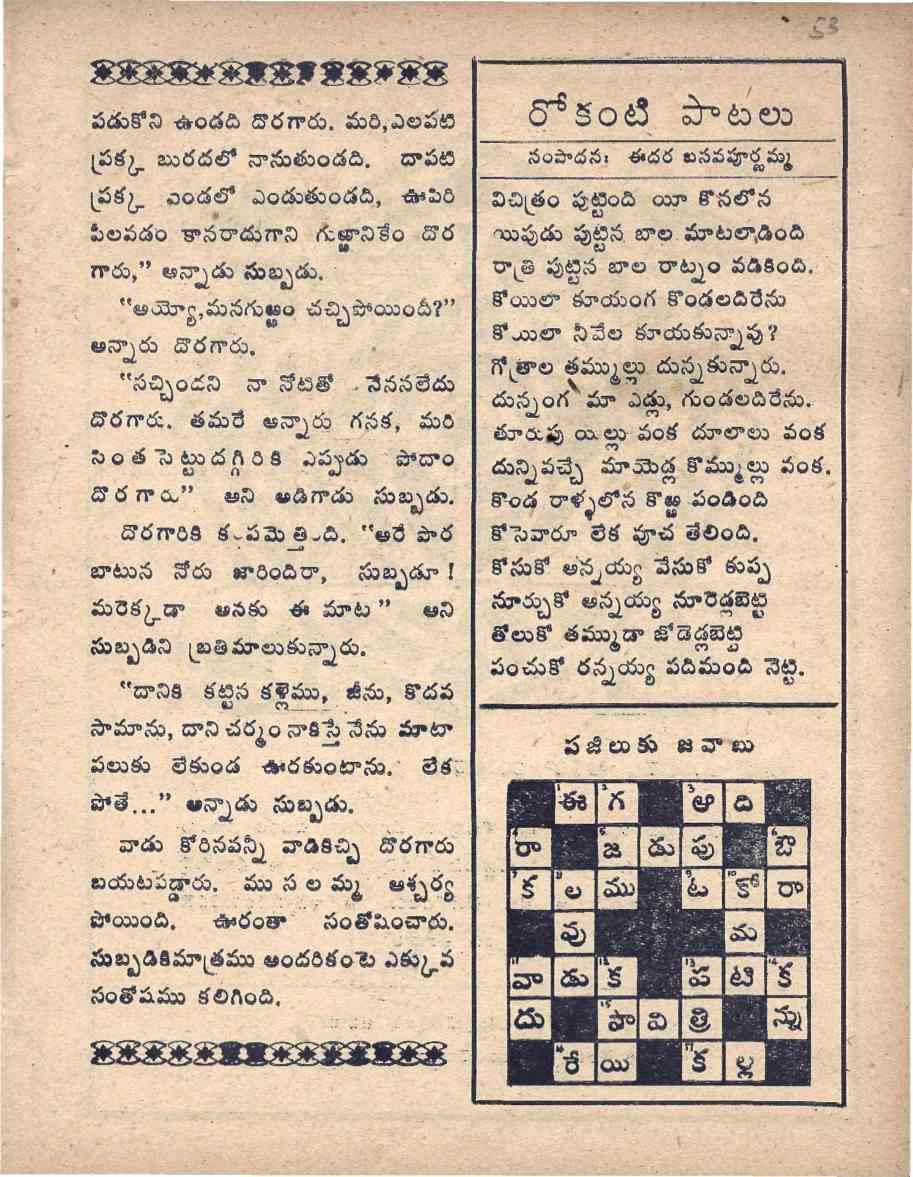 53
పడుకోని ఉండది దొరగారు. మరి,ఎలపటి
ప్రక్క బురదలో నానుతుండది. దాపటి
ప్రక్క ఎండలో ఎండుతుండది, ఊపిరి
పీలవడం కానరాదుగాని గుఱ్ఱానికేం దొర
గారు,” అన్నాడు సుబ్బడు.
“అయ్యో,మనగుఱ్ఱం చచ్చిపోయిందీ?”
అన్నారు దొరగారు.
“సచ్చిందని నా నోటితో నేననలేదు
దొరగారు. తమరే అన్నారు గనక, మరి
సింత సెట్టుదగ్గిరికి ఎప్పుడు పోదాం
దొరగారు” అని అడిగాడు సుబ్బడు.
దొరగారికి కోపమెత్తింది. “అరే పొర
బాటున నోరు జారిందిరా, సుబ్బడూ !
మరెక్కడా అనకు ఈ మాట” అని
సుబ్బడిని బ్రతిమాలుకున్నారు.
“దానికి కట్టిన కళ్లెము, జీను, కొదవ
సామాను, దాని చర్మం నాకిస్తే నేను మాటా
పలుకు లేకుండ ఊరకుంటాను. లేక
పోతే...” అన్నాడు సుబ్బడు.
వాడు కోరినవన్నీ వాడికిచ్చి దొరగారు
బయటపడ్డారు. ముసలమ్మ ఆశ్చర్య
పోయింది. ఊరంతా సంతోషించారు.
సుబ్బడికిమాత్రము అందరికంటె ఎక్కువ
సంతోషము కలిగింది.
రోకంటి పాటలు
సంపాదన: ఈదర బసవపూర్ణమ్మ
విచిత్రం పుట్టింది యీ కొనలోన
యిపుడు పుట్టిన బాల మాటలాడింది
రాత్రి పుట్టిన బాల రాట్నం వడికింది.
కోయిలా కూయంగ కొండలదిరేను
కోయిలా నీవేల కూయకున్నావు?
గోత్రాల తమ్ముల్లు దున్నకున్నారు.
దున్నంగ మా ఎడ్లు, గుండలదిరేను.
తూరుపు యిల్లు వంక దూలాలు వంక
దున్నివచ్చే మాయెడ్ల కొమ్ముల్లు వంక.
కొండ రాళ్ళలోన కొఱ్ఱ పండింది
కోసెవారూ లేక వూచ తేలింది.
కోసుకో అన్నయ్య వేసుకో కుప్ప
నూర్చుకో అన్నయ్య నూరెడ్లబెట్టి
తోలుకో తమ్ముడా జోడెడ్లబెట్టి
పంచుకో రన్నయ్య పదిమంది నెట్టి.
పజిలుకు జవాబు
ఈ గ ఆ ది
రా జ డు పు ఔ
క ల ము ఓ కో రా
వు మ
వ్రా డు క ప టి క
దు పా వి త్రి న్ను
రే యి క ల్ల